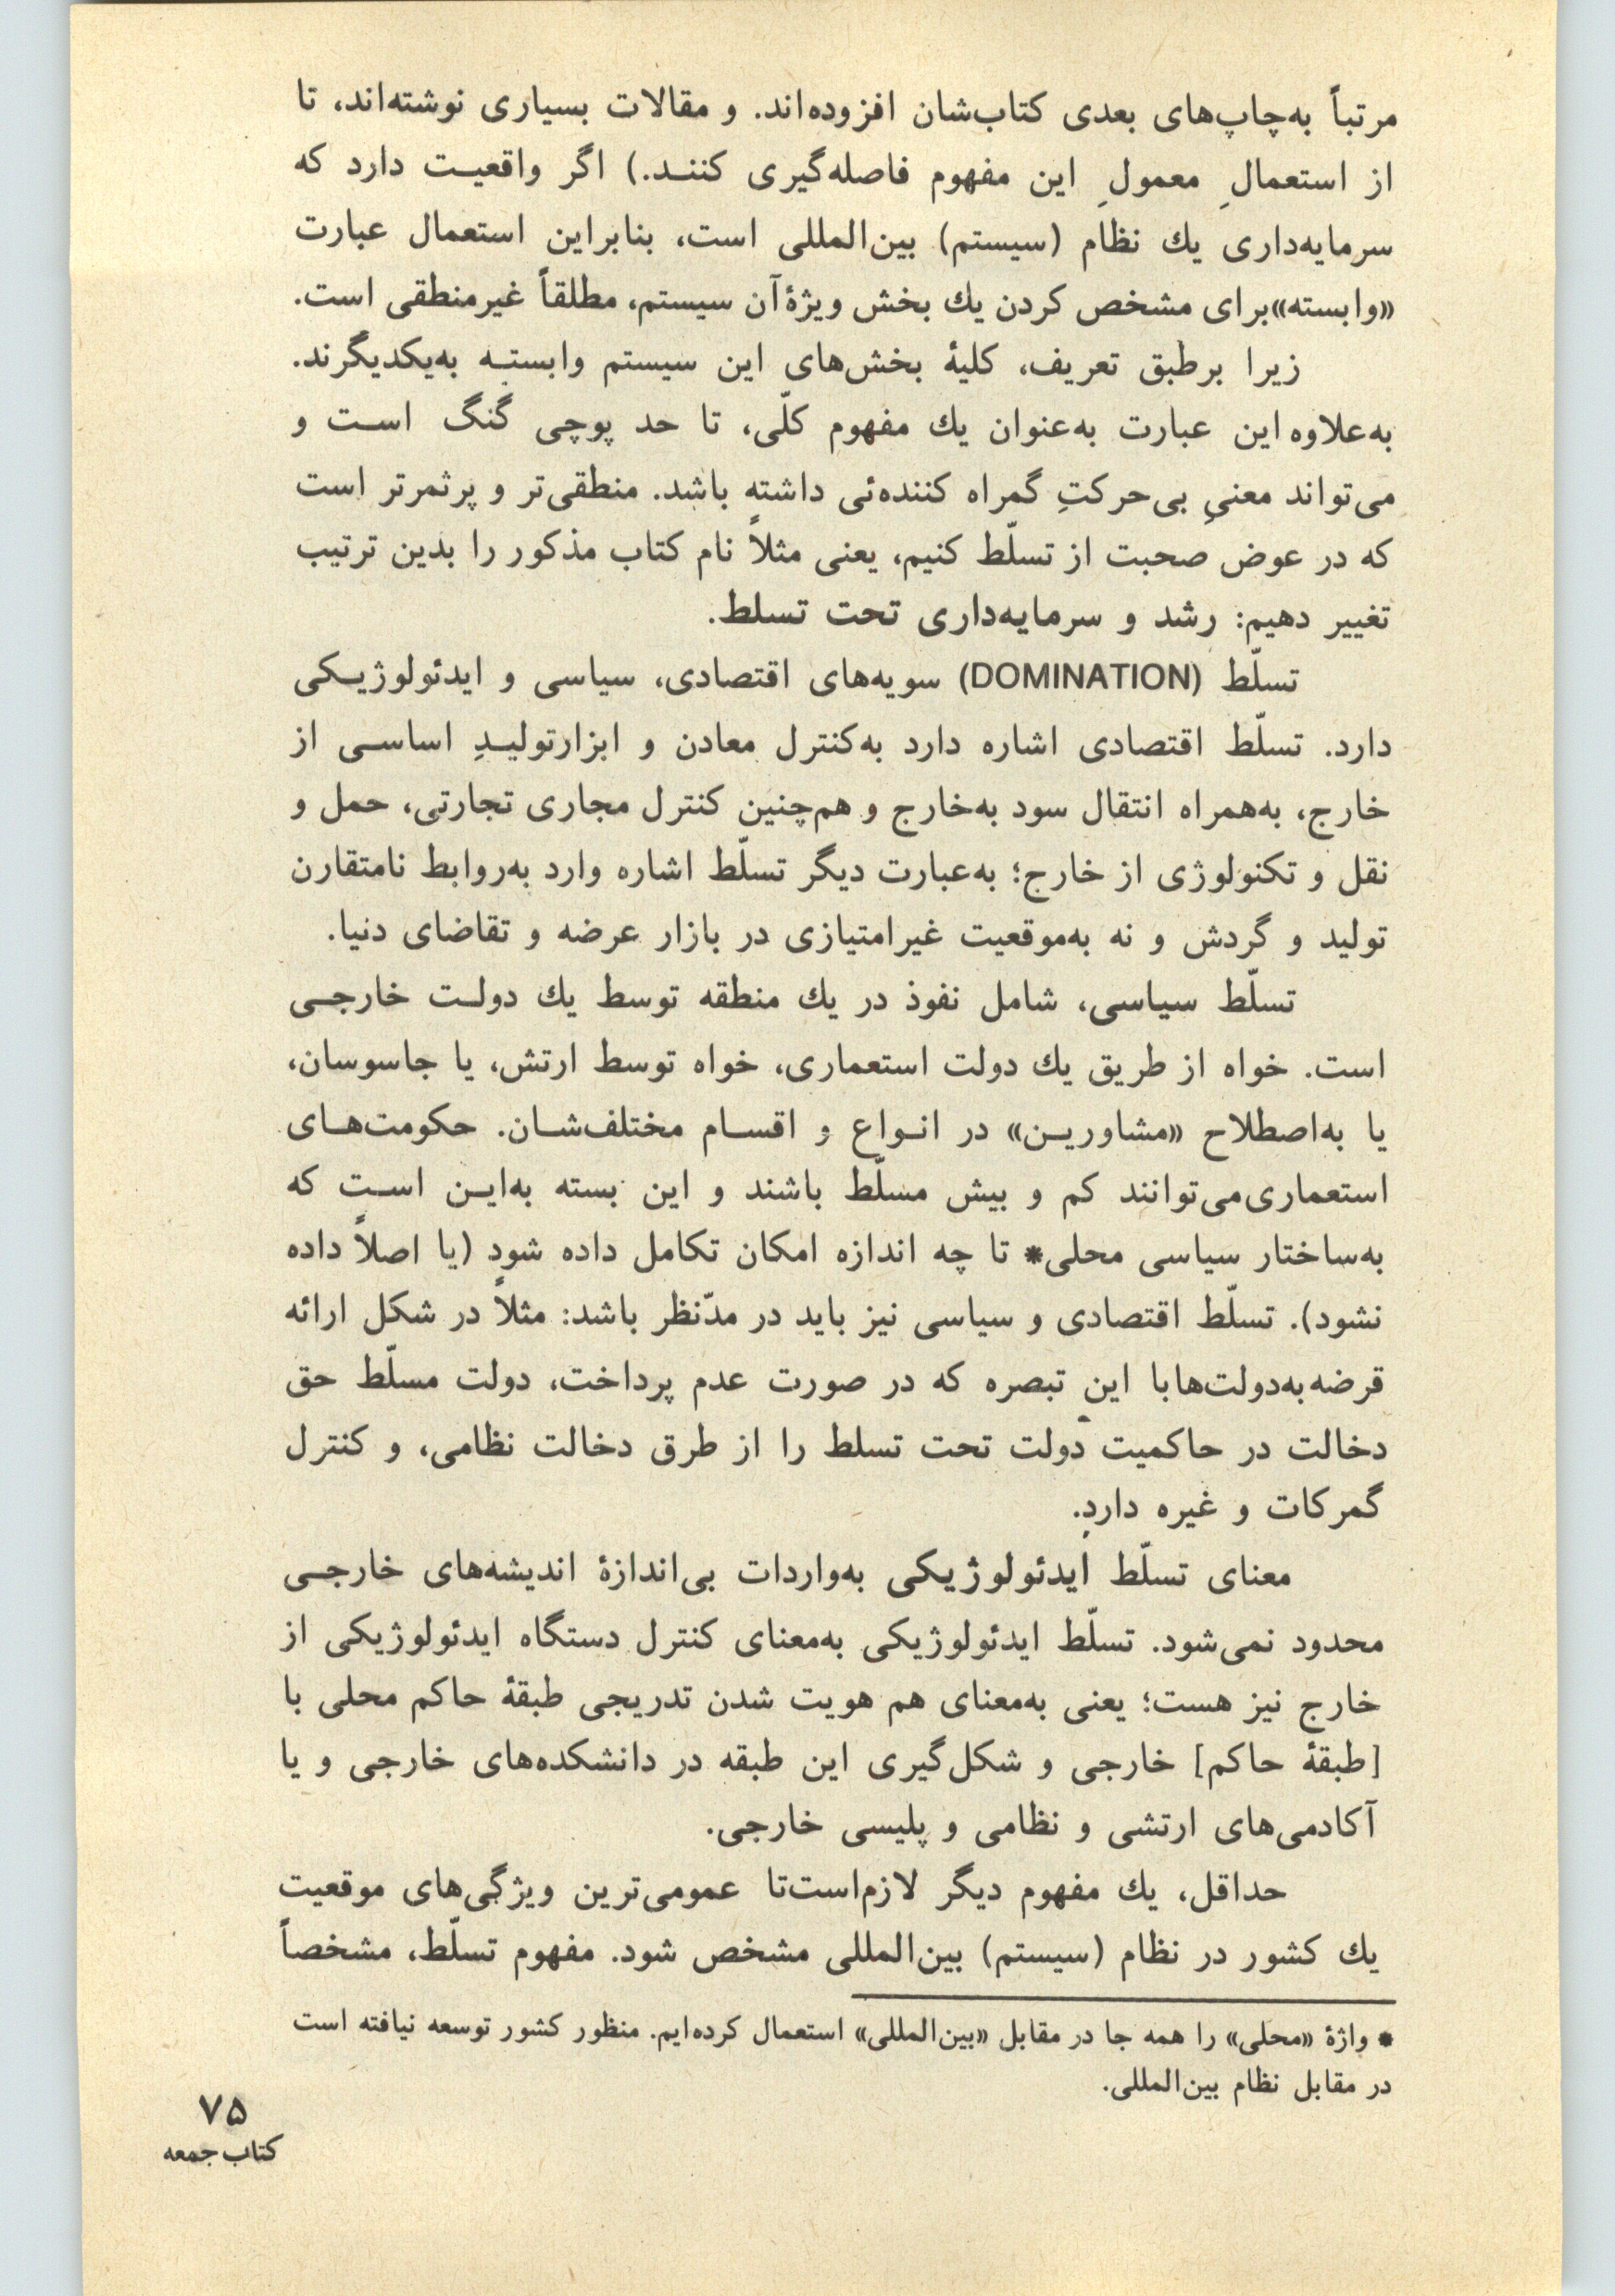 مرتباً به‌چاپ‌های بعدی کتاب‌شان افزوده‌اند. و مقالات بسیاری نوشته‌اند، تا
از استعمالِ معمولِ این مفهوم فاصله‌گیری کننـد.) اگر واقعیـت دارد که
سرمایه‌داری یك نظام (سیستم) بین‌المللی است، بنابراین استعمال عبارت
«وابسته»برای مشخص کردن یك بخش ویژهٔ آن سیستم، مطلقاً غیرمنطقی است.
زیرا برطبق تعریف، کلیهٔ بخش‌های این سیستم وابستـه به‌یکدیگرند.
به‌علاوه این عبارت به‌عنوان یك مفهوم کلّی، تا حد پوچی گنگ اسـت و
می‌تواند معنیِ بی‌حرکتِ گمراه کننده‌ئی داشته باشد. منطقی‌تر و پرثمرتر است
که در عوض صحبت از تسلّط کنیم، یعنی مثلاً نام کتاب مذکور را بدین ترتیب
تغییر دهیم: رشد و سرمایه‌داری تحت تسلط.
تسلّط (DOMINATION) سویه‌های اقتصادی، سیاسی و ایدئولوژیـکی
دارد. تسلّط اقتصادی اشاره دارد به‌کنترل معادن و ابزارتولیـدِ اساسـی از
خارج، به‌همراه انتقال سود به‌خارج و هم‌چنین کنترل مجاری تجارتی، حمل و
نقل و تکنولوژی از خارج؛ به‌عبارت دیگر تسلّط اشاره وارد به‌روابط نامتقارن
تولید و گردش و نه به‌موقعیت غیرامتیازی در بازار عرضه و تقاضای دنیا.
تسلّط سیاسی، شامل نفوذ در یك منطقه توسط یك دولـت خارجـی
است. خواه از طریق یك دولت استعماری، خواه توسط ارتش، یا جاسوسان،
یا به‌اصطلاح «مشاوریـن» در انـواع و اقسـام مختلف‌شـان. حکومت‌هـای
استعماری‌می‌توانند کم و بیش مسلّط باشند و این بسته به‌ایـن اسـت که
به‌ساختار سیاسی محلی* تا چه اندازه امکان تکامل داده شود (یا اصلاً داده
نشود). تسلّط اقتصادی و سیاسی نیز باید در مدّنظر باشد: مثلاً در شکل ارائه
قرضه به‌دولت‌ها با این تبصره که در صورت عدم پرداخت، دولت مسلّط حق
دخالت در حاکمیت دولت تحت تسلط را از طرق دخالت نظامی، و کنترل
گمرکات و غیره دارد.
معنای تسلّط ایدئولوژیکی به‌واردات بی‌اندازهٔ اندیشه‌های خارجـی
محدود نمی‌شود. تسلّط ایدئولوژیکی به‌معنای کنترل دستگاه ایدئولوژیکی از
خارج نیز هست؛ یعنی به‌معنای هم هویت شدن تدریجی طبقهٔ حاکم محلی با
[طبقهٔ حاکم] خارجی و شکل‌گیری این طبقه در دانشکده‌های خارجی و یا
آکادمی‌های ارتشی و نظامی و پلیسی خارجی.
حداقل، یك مفهوم دیگر لازم‌است‌تا عمومی‌ترین ویژگی‌های موقعیت
یك کشور در نظام (سیستم) بین‌المللی مشخص شود. مفهوم تسلّط، مشخصاً
* واژهٔ «محلی» را همه جا در مقابل «بین‌المللی» استعمال کرده‌ایم. منظور کشور توسعه نیافته است
در مقابل نظام بین‌المللی.
۷۵
کتاب جمعه